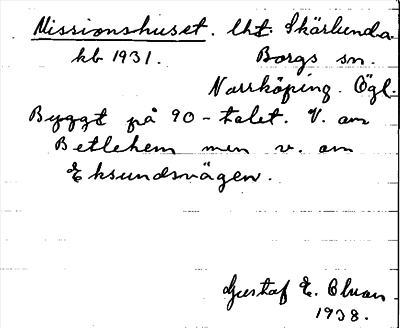 Missionshuset. Lht. Skärlunda
kb 1931. Borgs sn.
Norrköping. Ögl.
Byggt på 90-talet. V. om
Betlehem men v. om
Eksundsvägen.
Gustaf E. Ohlson
1938.